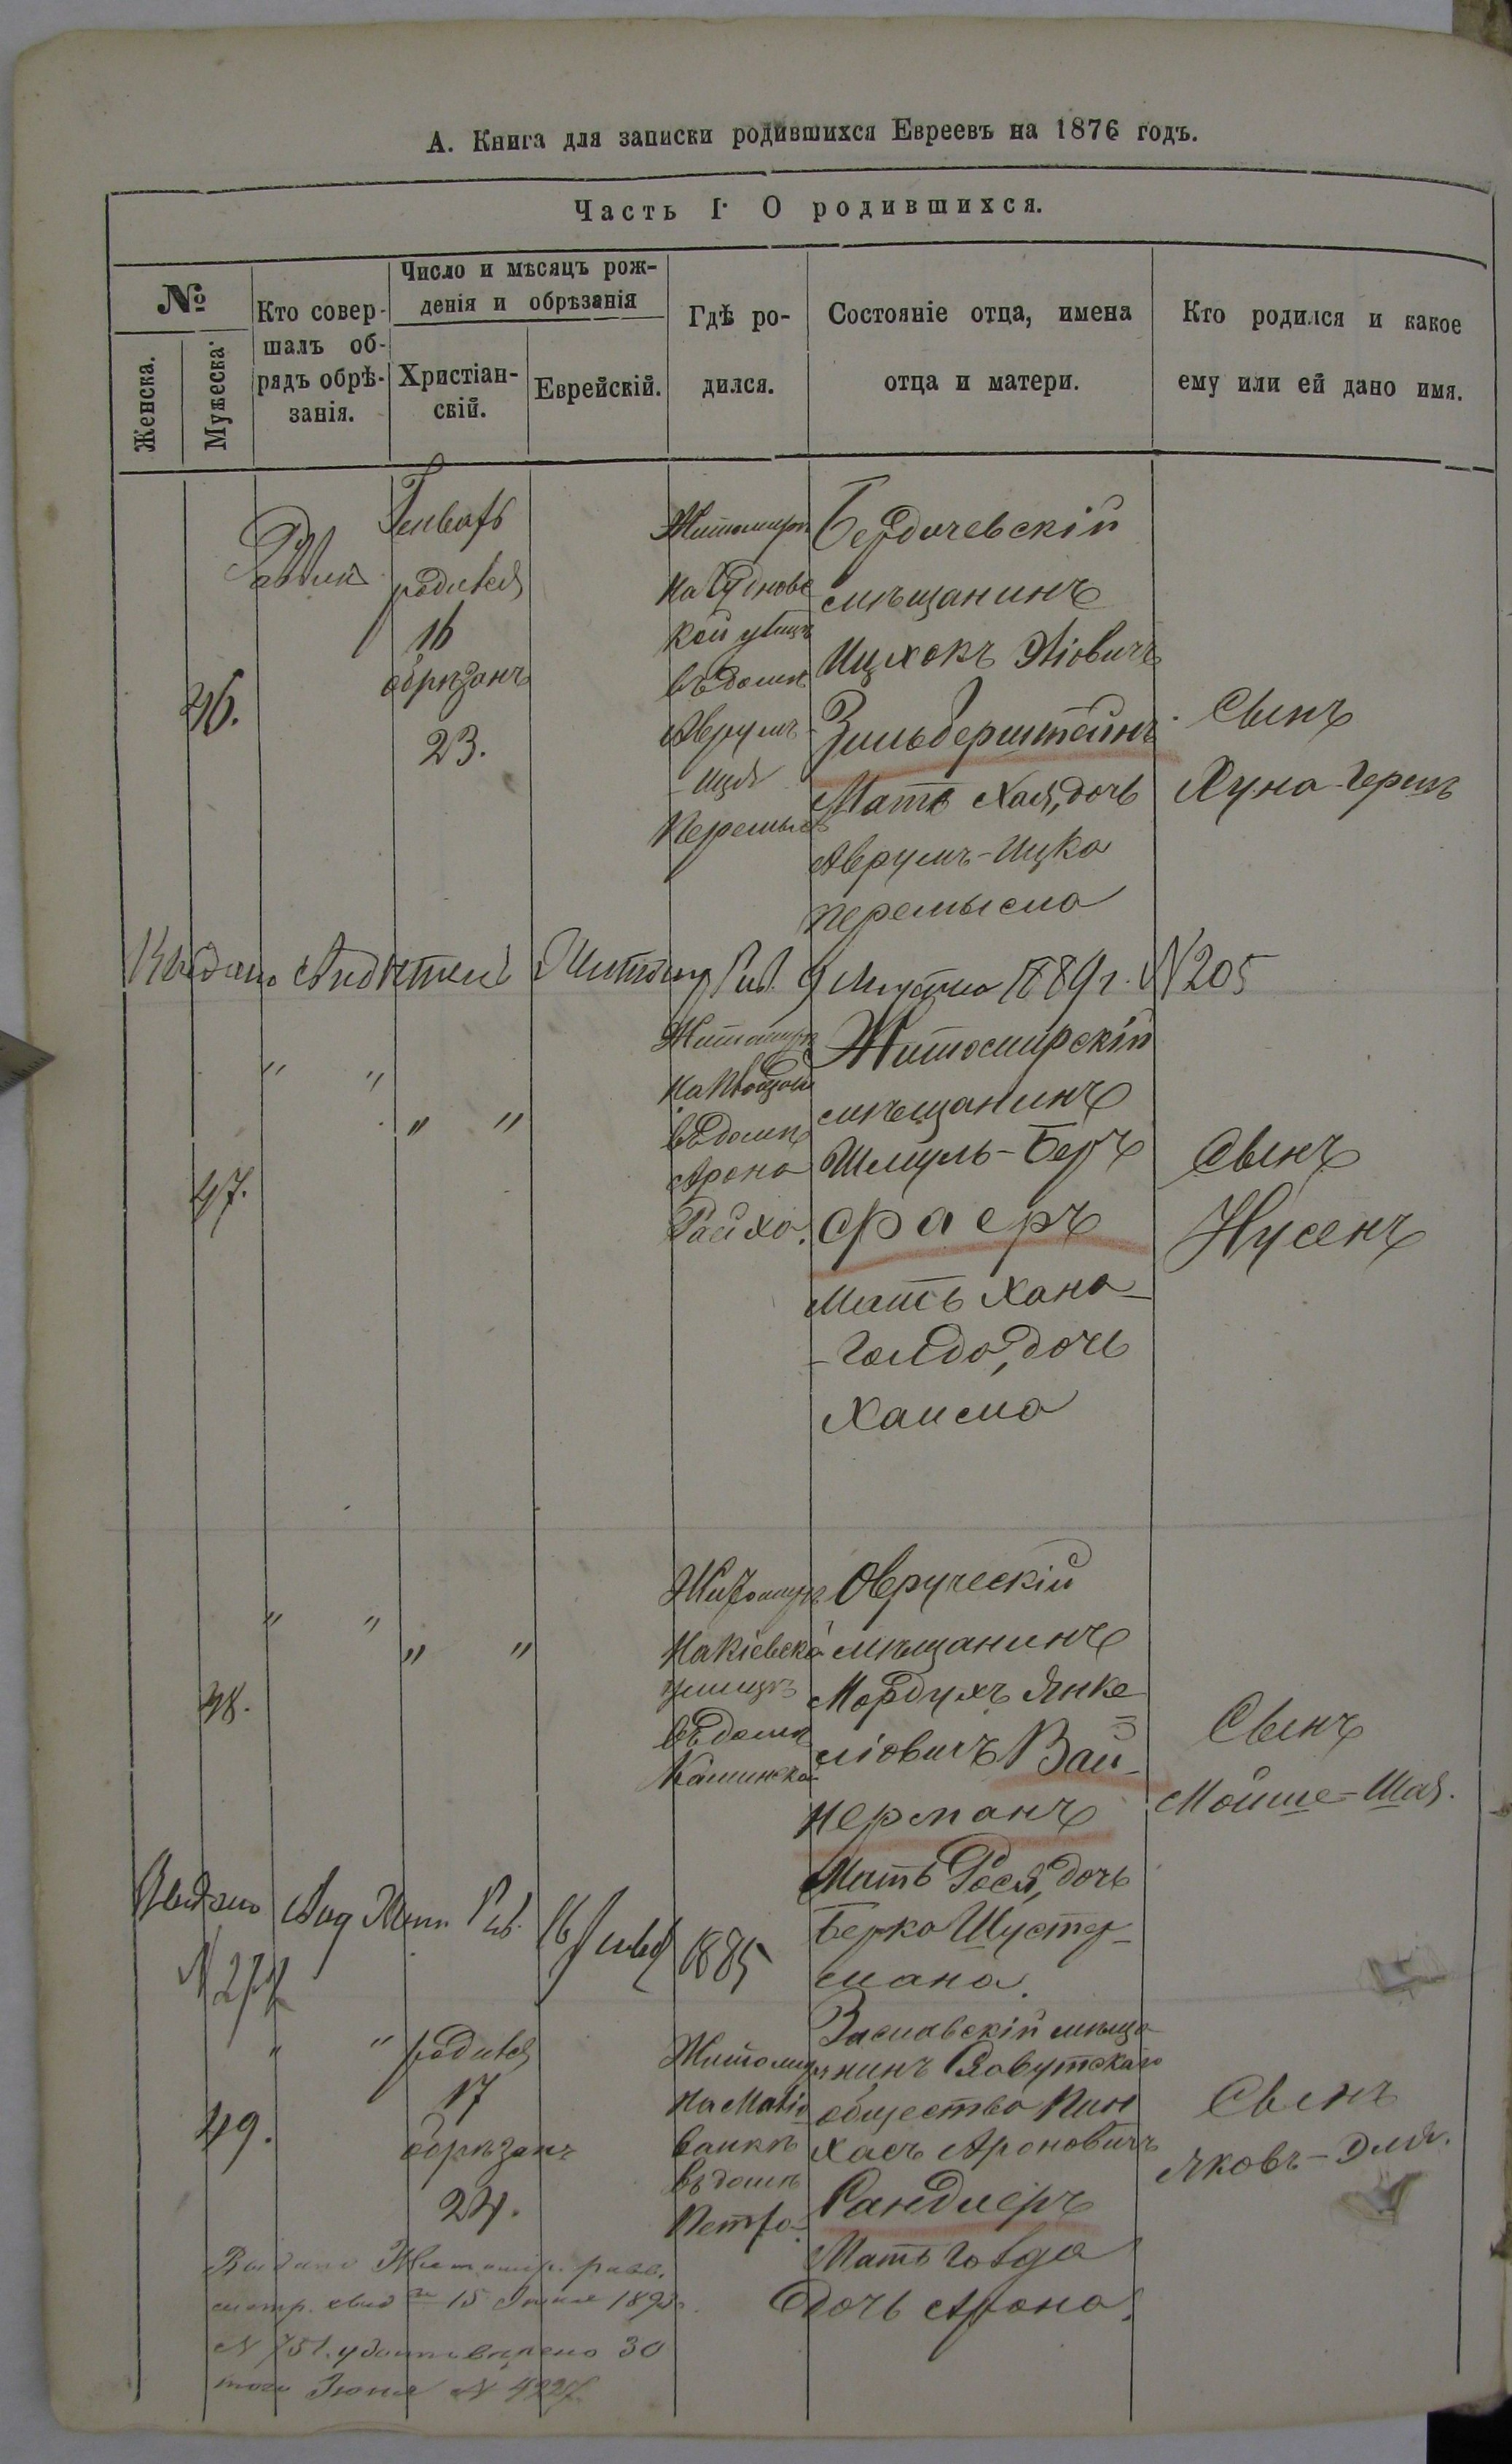 А. Книга для записки родившихся Евреевъ на 1876 годъ.
Часть I. О родившихся.
№
Женска.
Мужеска.
Кто совер-
шалъ об-
рядъ обрѣ-
занія.
Число и мѣсяцъ рож-
денія и обрѣзанія
Христіан-
скій.
Еврейскій.
Гдѣ ро-
дился.
Состояніе отца, имена
отца и матери.
Кто родился и какое
ему или ей дано имя.
46.
Генварь
родился
16
обрѣзанъ
23.
Житомиръ
на Чудновс
кой улицѣ
въ домѣ
Аврумъ-
-Ицка
Перемысл
Бердичевскій
мѣщанинъ
Ицхокъ
Зильберштейнъ
Мать Хая, дочь
Аврумъ-Ицка
Перемысла
Сынъ
Хуна-Герш
Выдано Житомир 1889 г. № 205
47.
" "
" "
Житомиръ
въ домѣ
Арона
Райха.
Житомирскій
мѣщанинъ
Шмуль-Беръ
Фаеръ
Мать Хана-
-Голда, дочь
Хаима
Сынъ
Нусенъ
48.
" "
" "
Житомиръ
на Кіевской
улицѣ
въ домѣ
Каминска
Овруческій
мѣщанинъ
Мордухъ Янке
ліовичъ Вай-
нерманъ
Мать Рося, дочь
Берка Шустер-
мана.
Сынъ
Мойше-Шая.
Выдано 16 1885
49.
" "
родился
17
обрѣзанъ
24.
Житомиръ
ванкѣ
въ домѣ
Петро
Заславскій мѣща-
нинъ Славутскаго
общества Пин
хасъ Ароновичъ
Сандлеръ
Мать Голда
дочь Арона.
Сынъ
Яковъ-Эля.
Выдано Житомир. равв.
метр. свид 15 Іюня
№ 751. удостовѣрено 30
того Іюня №